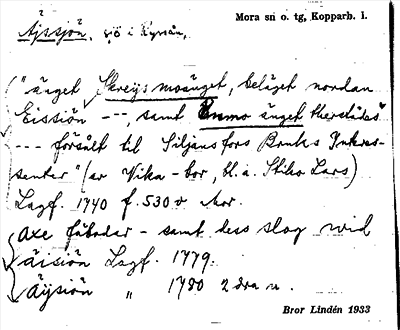 Mora sn o. tg, Kopparb. l.
Äjssjön, sjö i Kyrsån,
"änget Skreijs mosänget, beläget nordan
Eissiön ---, samt Enmo änget therstädes
--- försålt til Siljansfors Bruks Intres-
senter" (av Vika-bor, bl. a. Stiko Lars)
Lagf. 1740 f. 530 v Mor.
axe fäbodar - samt dess slog wid
äisiön Lagf. 1779.
Äÿsiön " 1780 2 dra n.
Bror Lindén 1933